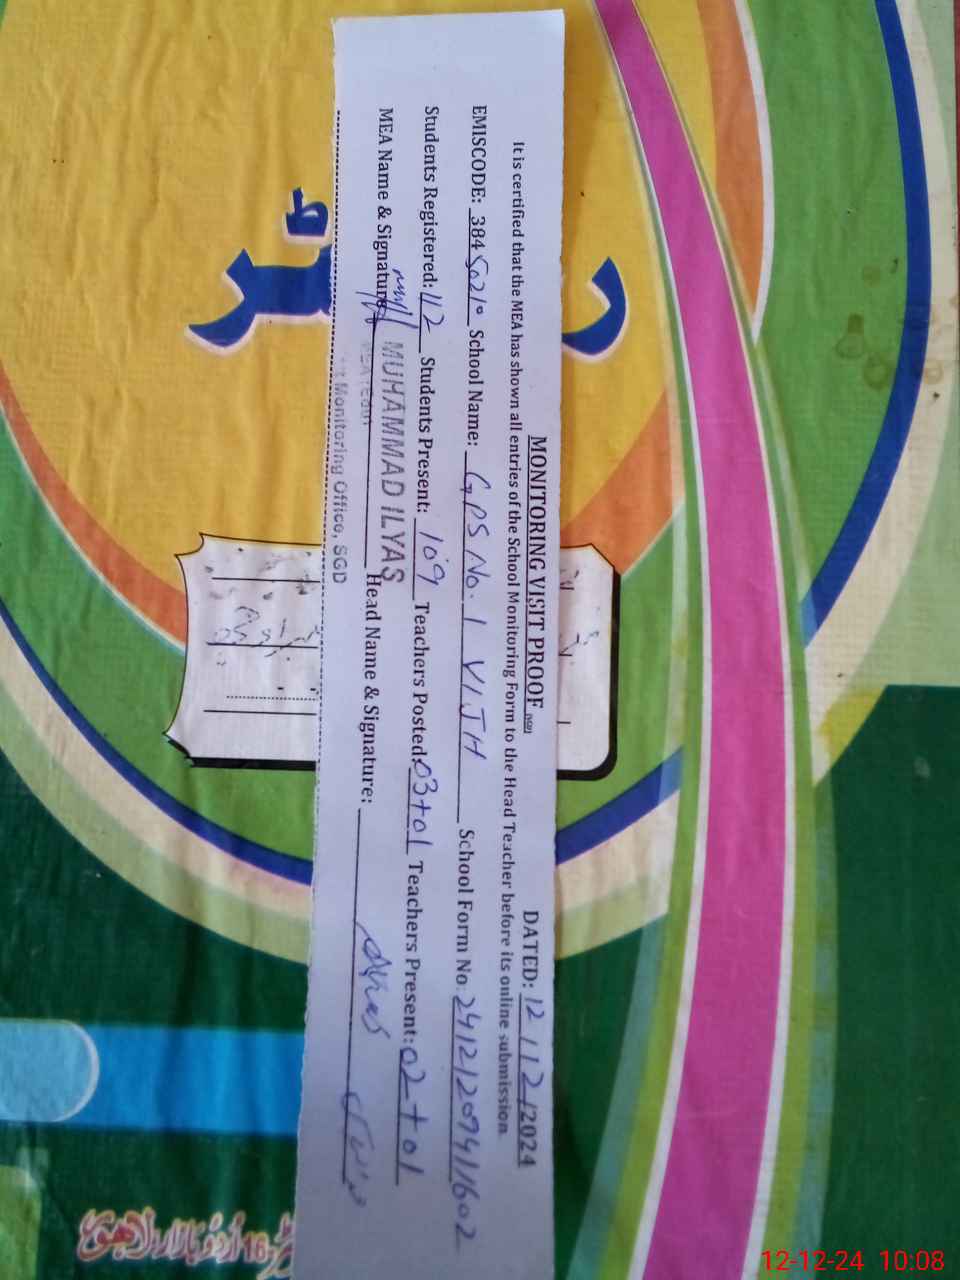 MONITORING VISIT PROOF (SGD) DATED: 12/12/2024
It is certified that the MEA has shown all entries of the School Monitoring Form to the Head Teacher before its online submission.
EMISCODE: 38450210 School Name: GPS No. 1 VIJH School Form No. 2412120941602
Students Registered: 112 Students Present: 109 Teachers Posted: 03+01 Teachers Present: 02+01
MEA Name & Signature MUHAMMAD ILYAS Head Name & Signature:
Monitoring Office, SGD
16 اردو بازار لاہور
12-12-24 10:08